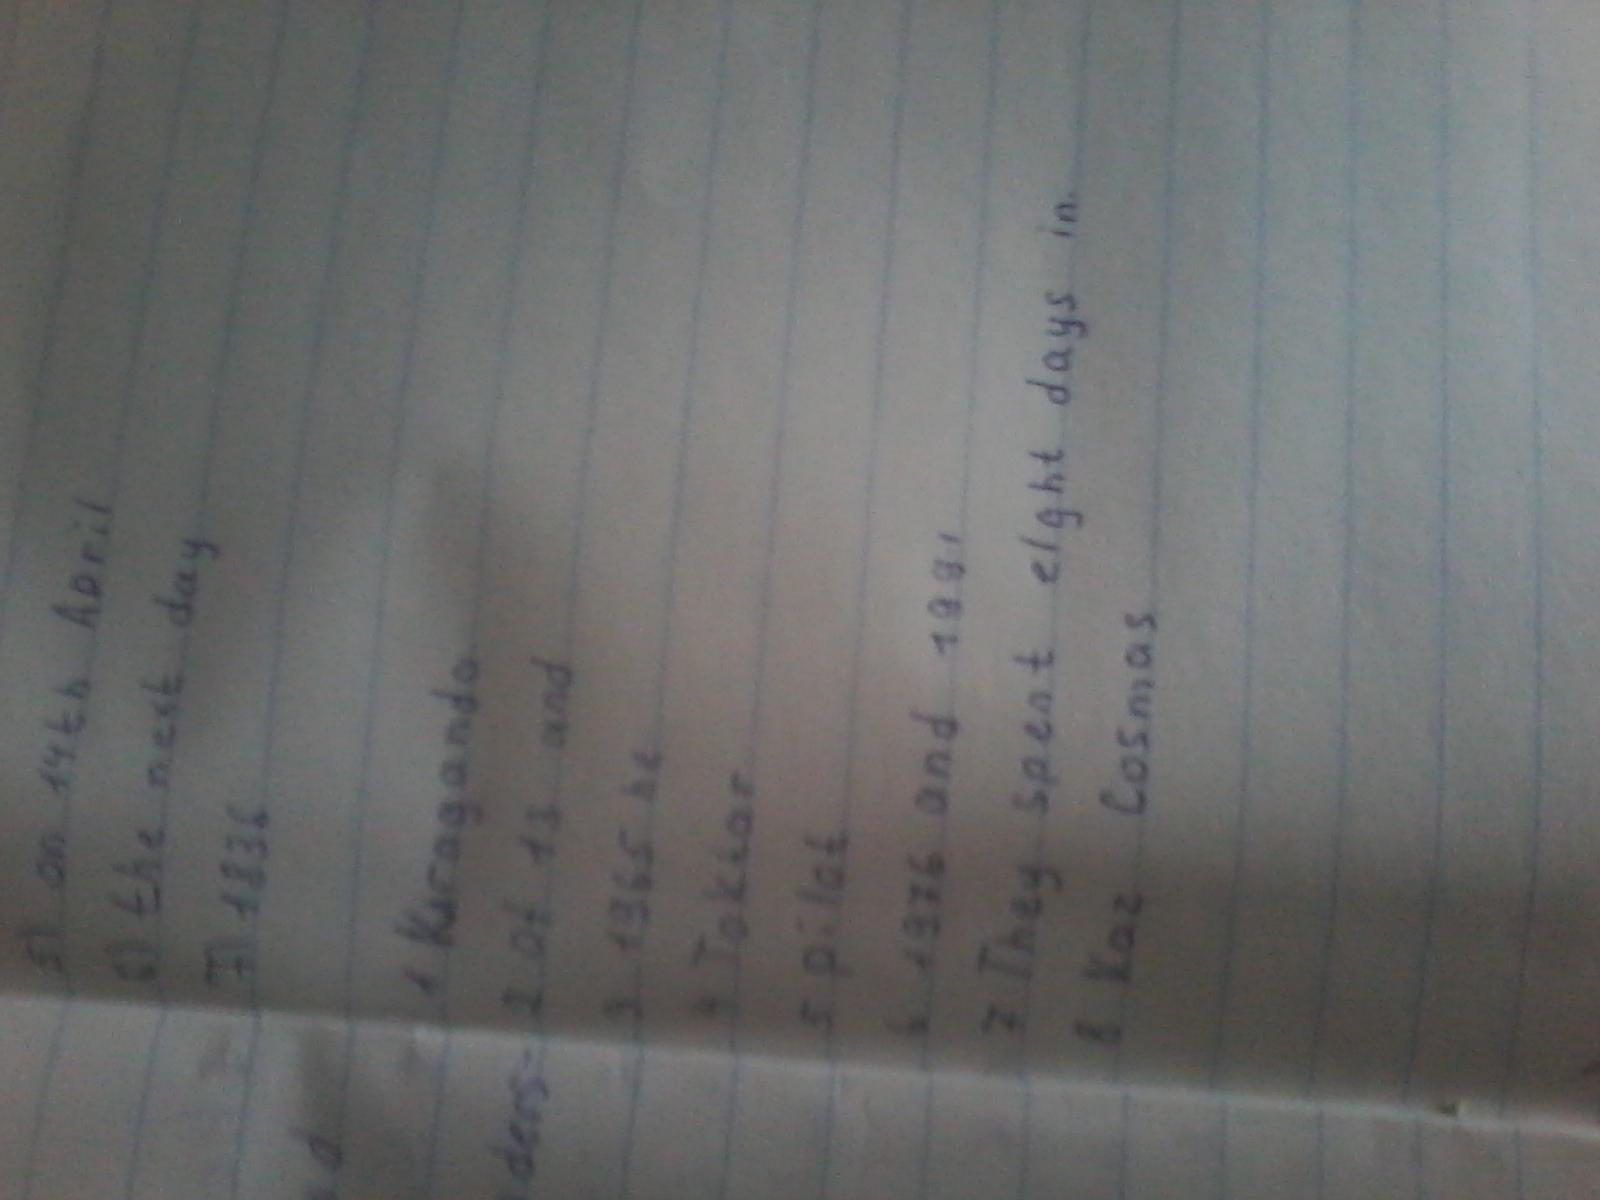 5) on 14th April
6) the nest day
7) 1836
1 Karaganda
2 Of 13 and
3 1965 he
4 Toktar
5 pilot
6 1976 and 1991
7 They spent eight days in.
8 Kaz Cosmos
ders-